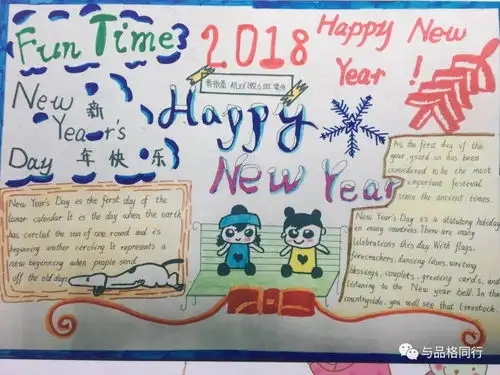 Fun Time
2018
Happy New
Year !
New 新
Year's
Day 年快乐
Happy
New Year
As the first day of the
year, yuard on has been
considered to be the most
important festival
since the ancient times.
New Year's Day is the first day of the
lunar calendar. It is the day when the earth
has circled the sun of one round and is
beginning another circling. It represents a
new beginning when people send
off the old days
New Year's Day is a statutory holiday
in many countries. There are many
celebrations this day. With flags,
firecrackers, dancing lions, writing
blessings, couplets, greeting cards, and
listening to the New year bell. In the
countryside, you will see that
与品格同行